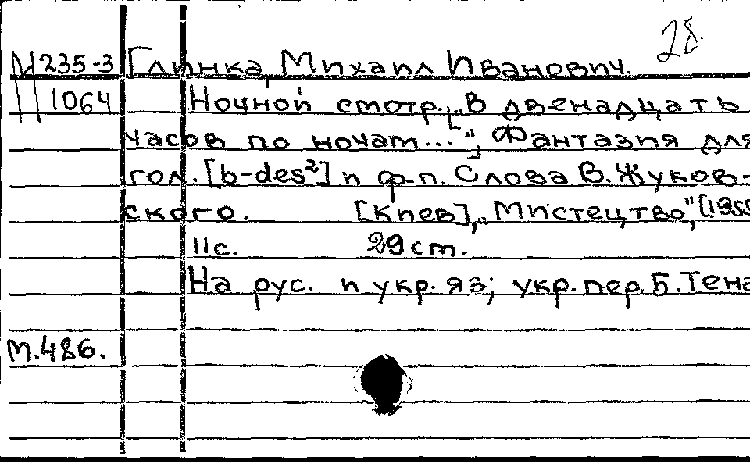 28.
М235-3 Глинка, Михаил Иванович.
1064 Ночной смотр. ["В двенадцать
часов по ночам..."]; Фантазия для
гол. [b-des²] и ф-п. Слова В. Жуков-
ского. [Киев], "Мистецтво",
11с. 29 cm.
На рус. и укр. яз; укр. пер. Б. Тена
М.486.